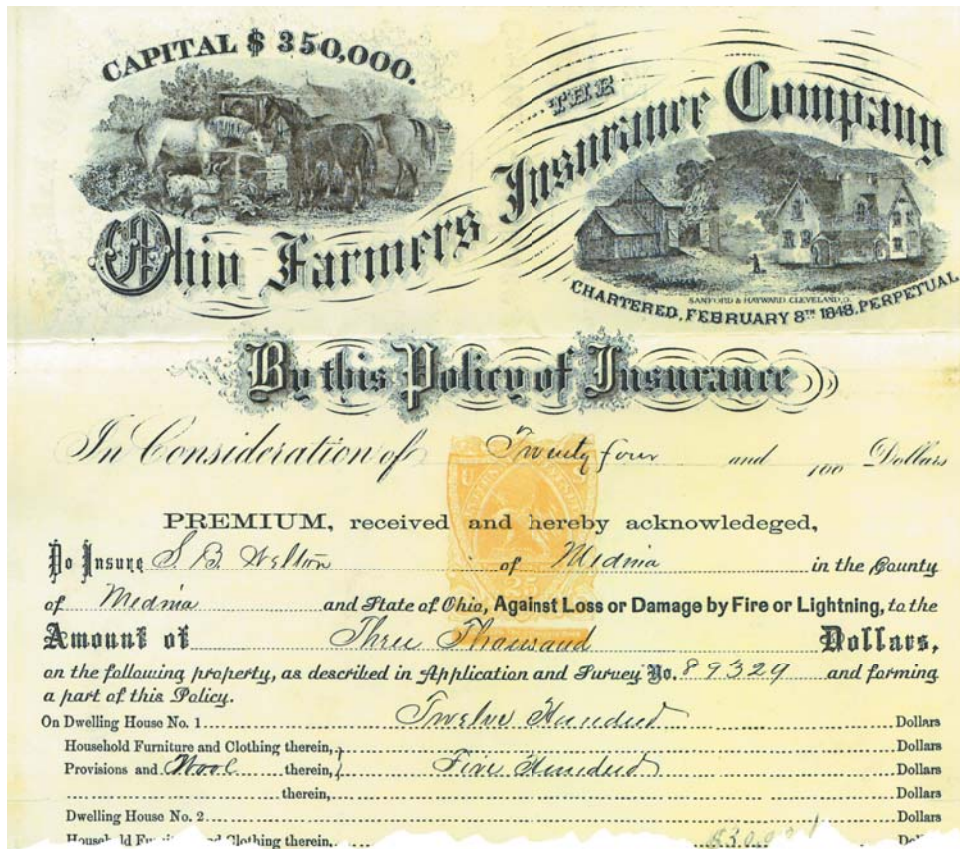 CAPITAL $ 350,000.
THE
Ohio Farmers Insurance Company
SANFORD & HAYWARD. CLEVELAND, O.
CHARTERED, FEBRUARY 8TH 1848, PERPETUAL
By this Policy of Insurance
In Consideration of Twenty four and 100 Dollars
PREMIUM, received and hereby acknowledeged,
To Insure S. B. Welton of Medina in the County
of Medina and State of Ohio, Against Loss or Damage by Fire or Lightning, to the
Amount of Three Thousand Dollars,
on the following property, as described in Application and Survey No. 89329 and forming
a part of this Policy.
On Dwelling House No. 1 Twelve Hundred Dollars
Household Furniture and Clothing therein, Dollars
Provisions and Wool therein, Five Hundred Dollars
therein, Dollars
Dwelling House No. 2 Dollars
Household and Clothing therein,